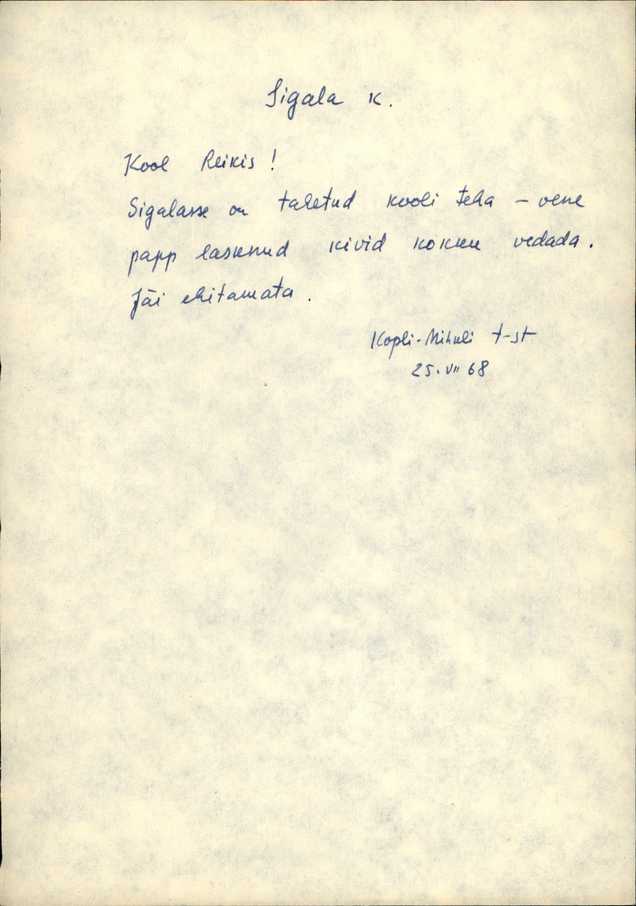 Sigala k.
Kool Reikis!
Sigalasse on tahetud kooli teha – vene
papp lasknud kivid kokku vedada.
Jäi ehitamata.
Kopli-Mihkli t-st
25.VII 68